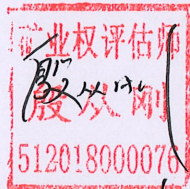 矿业权评估师
殷众刚
512018000076